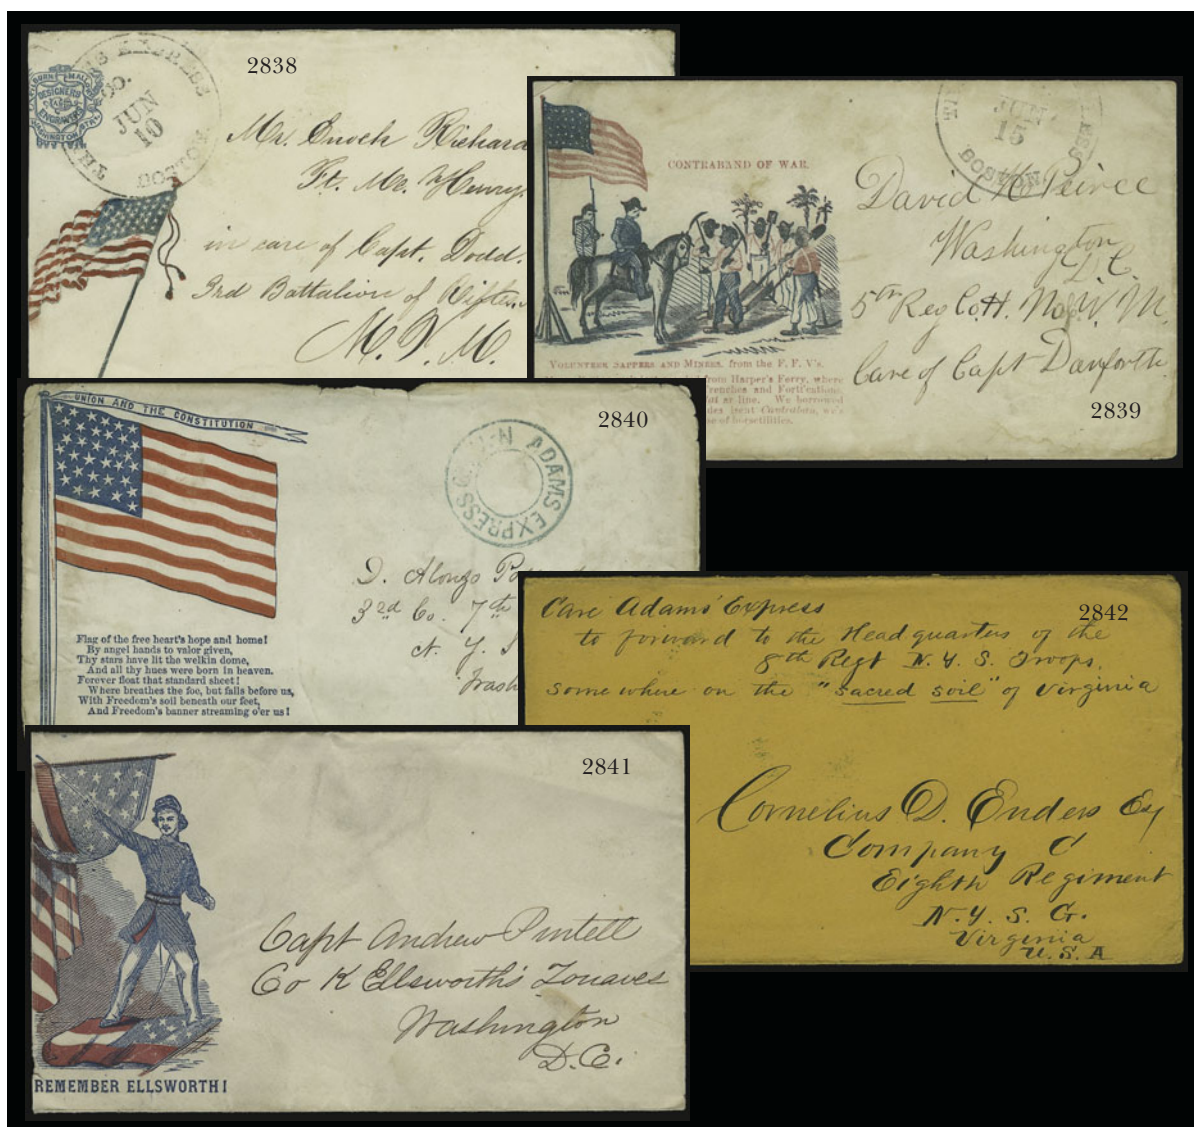 2838
JUN
10
BOSTON
Mr. Enoch Richard
Ft. Mc. Henry.
in care of Capt. Dodd.
3rd Battalion of
M. V. M.
JUN
15
BOSTON
CONTRABAND OF WAR.
David
Washington
D.C.
5th Reg Co. H.
Care of Capt Danforth
VOLUNTEER SAPPERS AND MINERS, from the F. F. V's.
from Harper's Ferry, where
Trenches and Fortifications,
at or line. We borrowed
2839
UNION AND THE CONSTITUTION
2840
ADAMS EXPRESS
D. Alonzo
3rd Co. 7th
N. Y. S
Wash
Flag of the free heart's hope and home!
By angel hands to valor given,
Thy stars have lit the welkin dome,
And all thy hues were born in heaven.
Forever float that standard sheet!
Where breathes the foe, but falls before us,
With Freedom's soil beneath our feet,
And Freedom's banner streaming o'er us!
2842
Care Adams' Express
to forward to the Head quarters of the
8th Regt N. Y. S. Troops.
somewhere on the "sacred soil" of Virginia
Cornelius D. Enders Esq
Company C
Eighth Regiment
N. Y. S. G.
Virginia
U. S. A
2841
Capt Andrew
Co K Ellsworth's Zouaves
Washington
D.C.
REMEMBER ELLSWORTH!